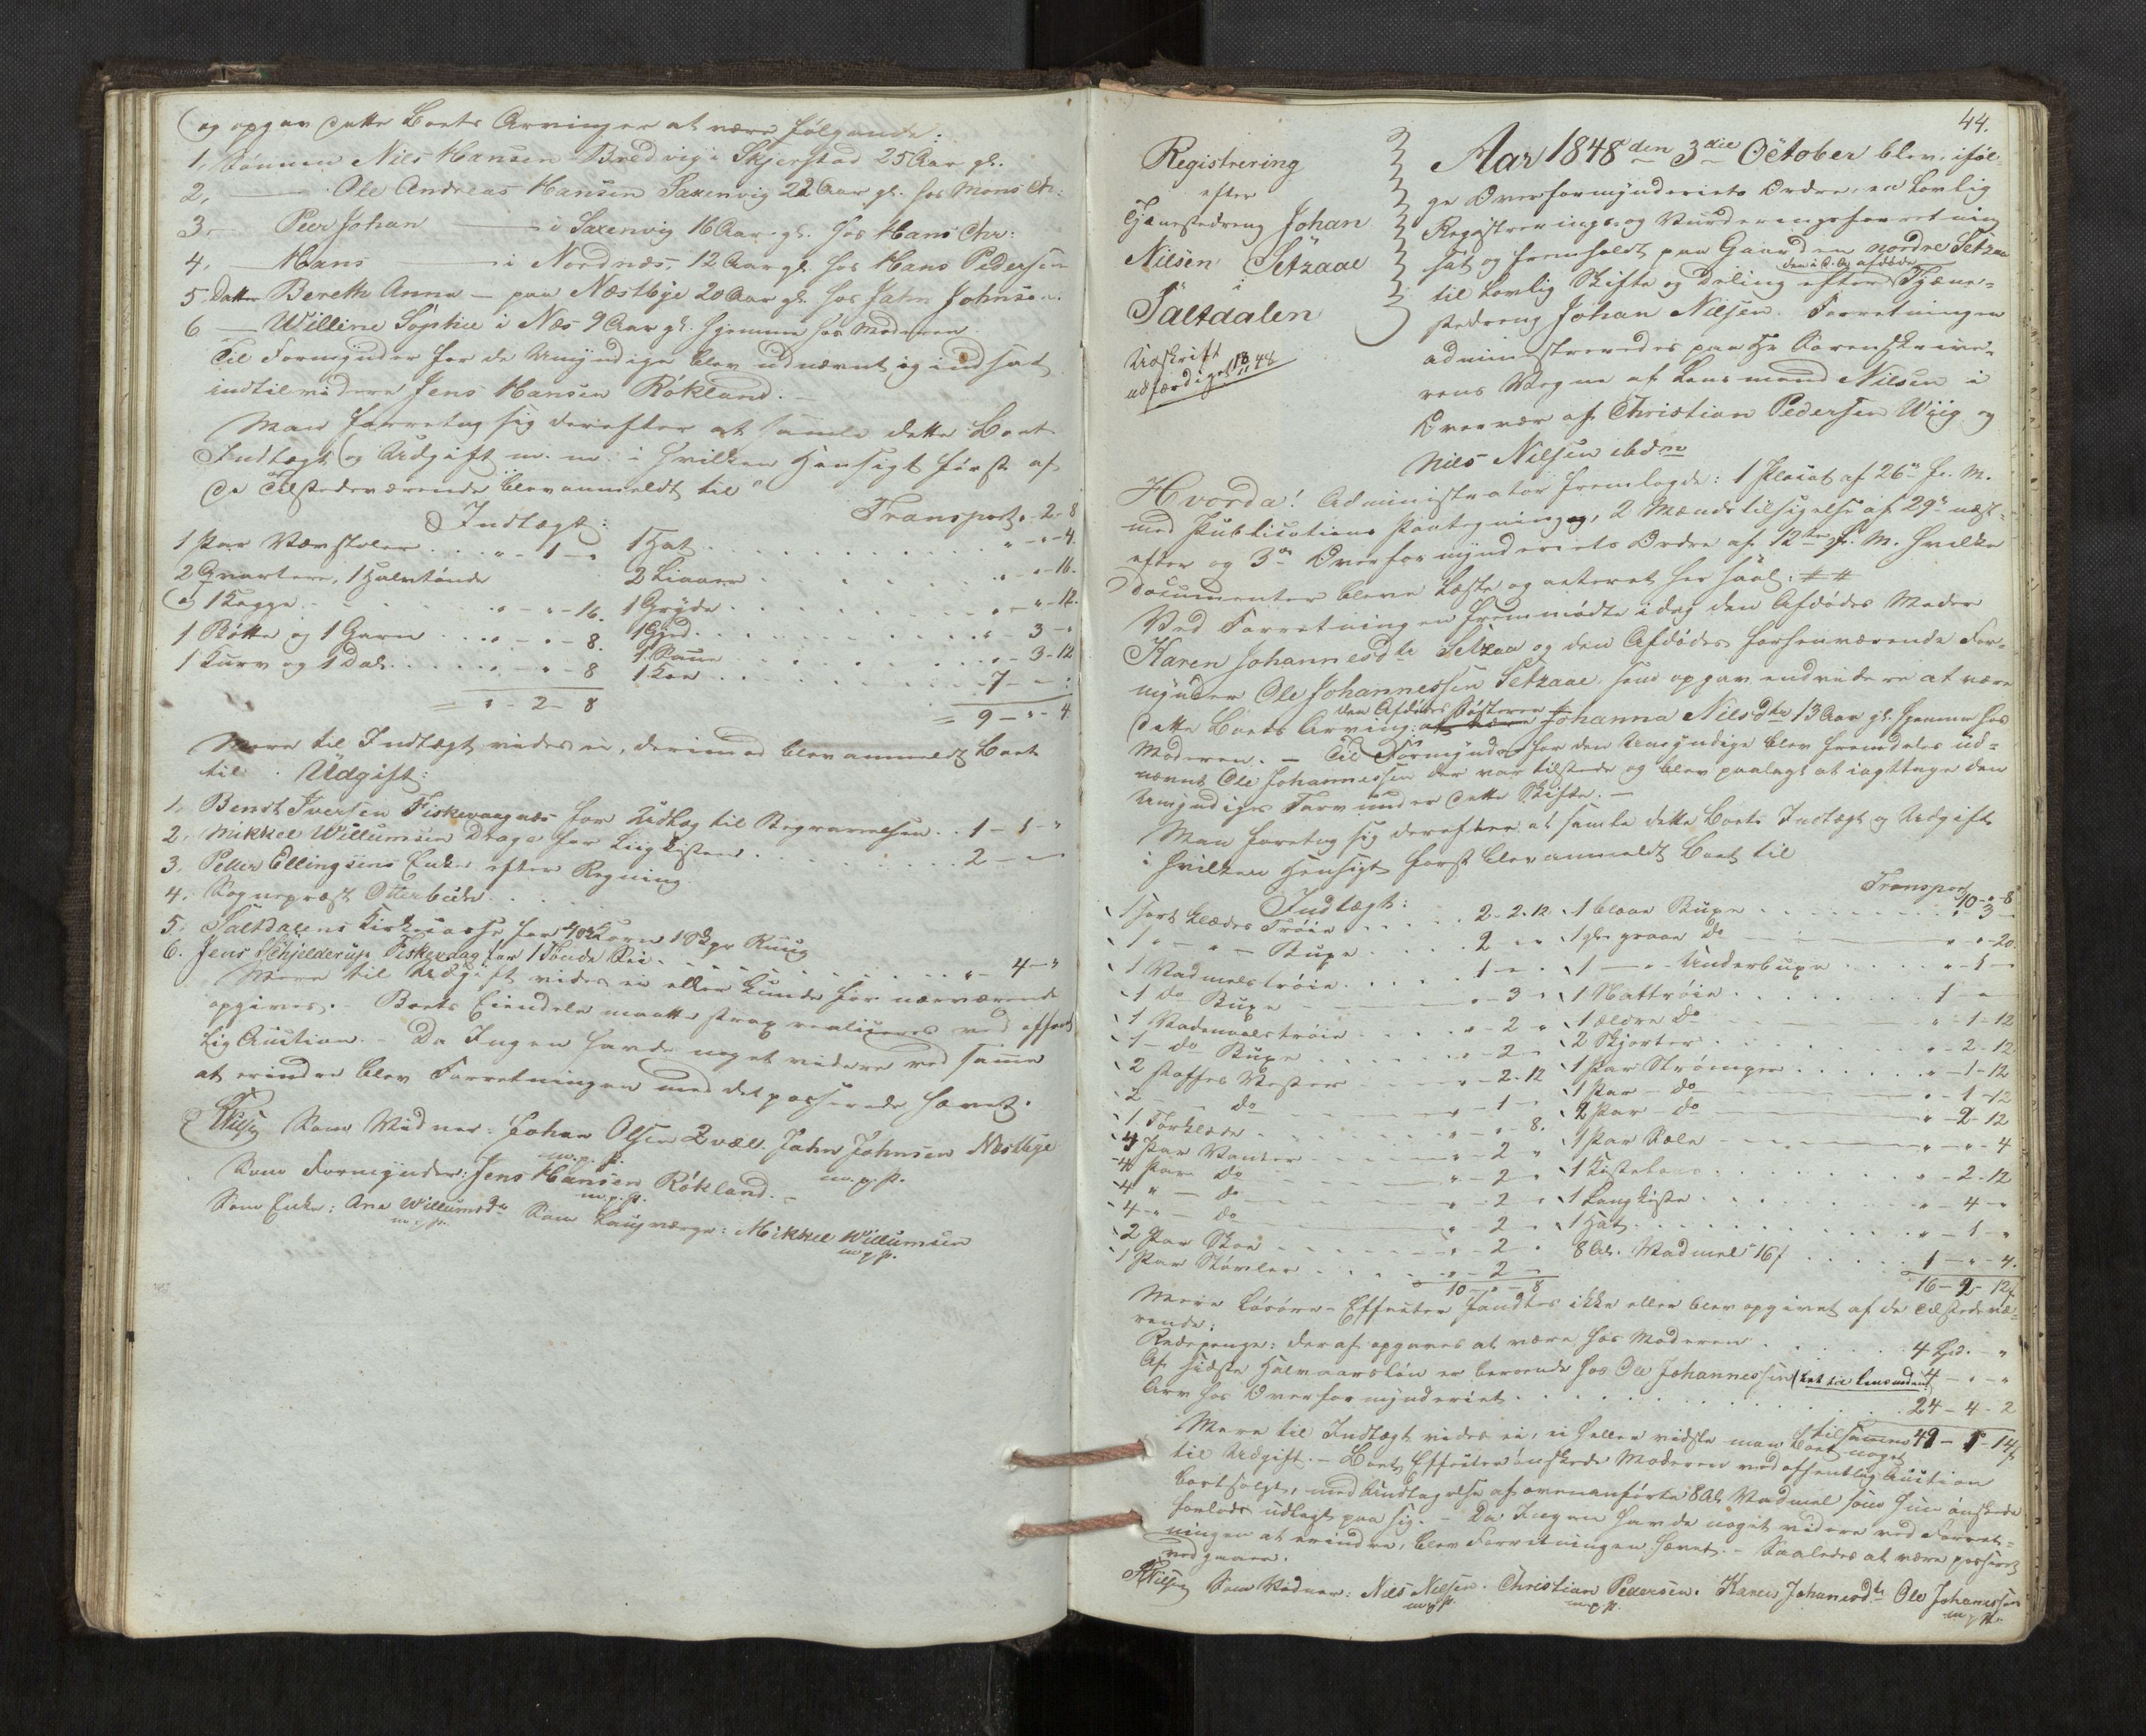 og opgav dette Boets Arvinger at være følgende:
1, Sønnen Niels Hansen Bredvig i Skjerstad 25 Aar gl.
2, — Ole Andreas Hansen Saxenvig 22 Aar gl. hos Mons Chr:
3,— Peer Johan — i Saxenvig 16 Aar gl. hos Hans Chr:
4, — Hans — i Nordnæs, 12 Aar gl. hos Hans Pedersen
5. Datter Bereth Anna — paa Næstbye 20 Aar gl. hos Jahn Johnsen.
6 — Willine Sophie i Næs 9 Aar gl. hjemme hos Moderen.
Til Formynder for de Umyndige blev udnævnt og indsat
indtil videre Jens Hansen Røkland. —
Man foretog sig derefter at samle dette Boets
Indtægt og Udgift m. m. i hvilken Hensigt først af
de Tilstedeværende blev anmeldt til
Indtægt:
1 Par Vævstoler . . . " - 1 - "
2 Qvarteer, 1 Halvtønde
og 1 Kagge . . . " - " - 16.
1 Bøtte og 1 Garn . . . " - " - 8.
1 Kurv og 1 Dal . . . " - " - 8
= " - 2 - 8
Transport " - 2 - 8
1 Hat . . . " - " - 4.
2 Liaaer . . . " - " - 16.
1 Gryde . . . " - " - 12.
1 Gjed . . . " - 3 - "
1 Saue . . . " - 3 - 12
1 Koe . . . 7 - " - "
= 9 - " - 4.
Mere til Indtægt vides ei, derimod blev anmeldt Boet
til Udgift:
1, Bendt Iversen Fiskevaagnæs for Udlæg til Begravelsen . . 1 - 1 - "
2, Mikkel Willumsen Drage for Liigkisten . . . 2 - " - "
3, Petter Ellingsens Enke efter Regning
4. Sognepræst Otterbech . . .
5. Saltdalens Kirkecasse for Korn 1 Skpr Ruug
6. Jens Schjelderup Fiskevaag for 1 Tønde Sei . . . " - 4 - "
Mere til Udgift vides ei eller kunde for nærværende
opgives. Boets Eiendele maatte strax realiceres ved offent-
lig Auction. — Da Ingen havde noget videre ved samme
at erindre blev Forretningen med det passerede hævet.
Nilsen Som Vidner: Johan Olsen Qvæl. Jahn Johnsen Næstbye
m. p. P. m. p. P.
Som Formynder: Jens Hansen Røkland. —
m. p. P.
Som Enke: Ane Willumsdtr Som Laugværge: Mikkel Willumsen
m. p. P. m. p. P.
44.
Registrering
efter
Tjenestedreng Johan
Nilsen Setzaae
i
Saltdalen
Udskrift
udfærdiget 48
Aar 1848 den 3die October blev, iføl-
ge Overformynderiets Ordre, en lovlig
Registrerings- og Vurderingsforretning
sat og fremholdt paa Gaarden nordre Setzaa
til lovlig Skifte og Deling efter den i d. A. afdøde Tjene-
stedreng Johan Nilsen. Forretningen
administreredes paa Hr Sorenskrive-
rens Vegne af Lensmand Nilsen i
Overvær af Christian Pedersen Wiig og
Niels Nilsen ibdm
Hvorda! Administrator fremlagde: 1 Placat af 26n f. M.
med Publications Paategning, 2 Mændstilsigelse af 29n næst-
efter og 3o Overformynderiets Ordre af 12te f. M. hvilke
Documenter bleve læste og acteret her saal: ##
Ved Forretningen fremmødte idag den Afdødes Moder
Karen Johannesdtr Setzaa og den Afdødes forhenværende For-
mynder Ole Johannessen Setzaae, som opgav endvidere at være
dette Boets Arving: den Afdødes Søster Johanna Nilsdtr 13 Aar gl. hjemme hos
Moderen. — Til Formynder for den Umyndige blev fremdeles ud-
nævnt Ole Johannessen der var tilstede og blev paalagt at iagttage den
Umyndiges Tarv under dette Skifte. —
Man foretog sig derefter at samle dette Boets Indtægt og Udgift
i hvilken Hensigt først blev anmeldt Boet til
Indtægt:
1 sort Klædes Trøie . . . 2 - 2 - 12
1 " — " — Buxe . . . 2 " "
1 Vadmelstrøie . . . 1 - " -
1 do Buxe — " - 3 - "
1 Vadmelstrøie . . . " - 2 - "
1 — do Buxe . . . " - 2 -
2 Stoffes Vester . . . " - 2 - 12
2 — do — " - 1 -
1 Forklæde . . . " - " - 8.
4 Par Vanter . . . " - 2 "
4 Par do — " - 2 -
4 " — do — " - 2 -
4 - " — do — " - 2 -
2 Par Skoe . . . " - 2 -
1 Par Støvler . . . " - 2 -
10 - " - 8
Transport 10 - " - 8
1 blaae Buxe . . . " 3 —
1 gl. graae do — " - " - 20.
1 — " — Underbuxe . . . " - 1 -
1 Nattrøie . . . 1 - "
1 ældre do — " - 1 - 12
2 Skjorter . . . " - 2 - 12
1 Par Strømper . . . " - 1 - 12
1 Par — do — " - 1 - 12
2 Par — do — " - 2 - 12
1 Par Sæle . . . " - " - 4
1 . . . " - 2 - 12
1 Langkiste . . . " - 4 - "
1 Hat . . . " - 1 - "
8 Al. Vadmel 16 . . . 1 - " - 4.
16 - 2 - 12
Mere Løsøre-Effecter fandtes ikke eller blev opgivet af de Tilstedevæ-
rende.
Rede penge: deraf opgaves at være hos Moderen . . . 4 Spd. "
Af sidste Halvaarsløn er beroende hos Ole Johannessen 4 - " - "
Arv hos Overformynderiet . . . 24 - 4 - 2
tilsammen 49 - 1 - 14
Mere til Indtægt vides ei, ei heller vidste man Boet noget
til Udgift. — Boets Effecter ønskede Moderen ved offentlig Auction
bortsolgt, med Undtagelse af ovenanførte 8 Al. Vadmel som hun ønskede
forlods udlagt paa sig. — Da Ingen havde noget videre ved Forret-
ningen at erindre, blev Forretningen hævet. — Saaledes at være passeret
vedgaaer.
Nilsen Som Vidner: Nils Nilsen. Christian Pedersen. Karen Johanesdtr Ole Johanessen
m p P. m p P. m p P.